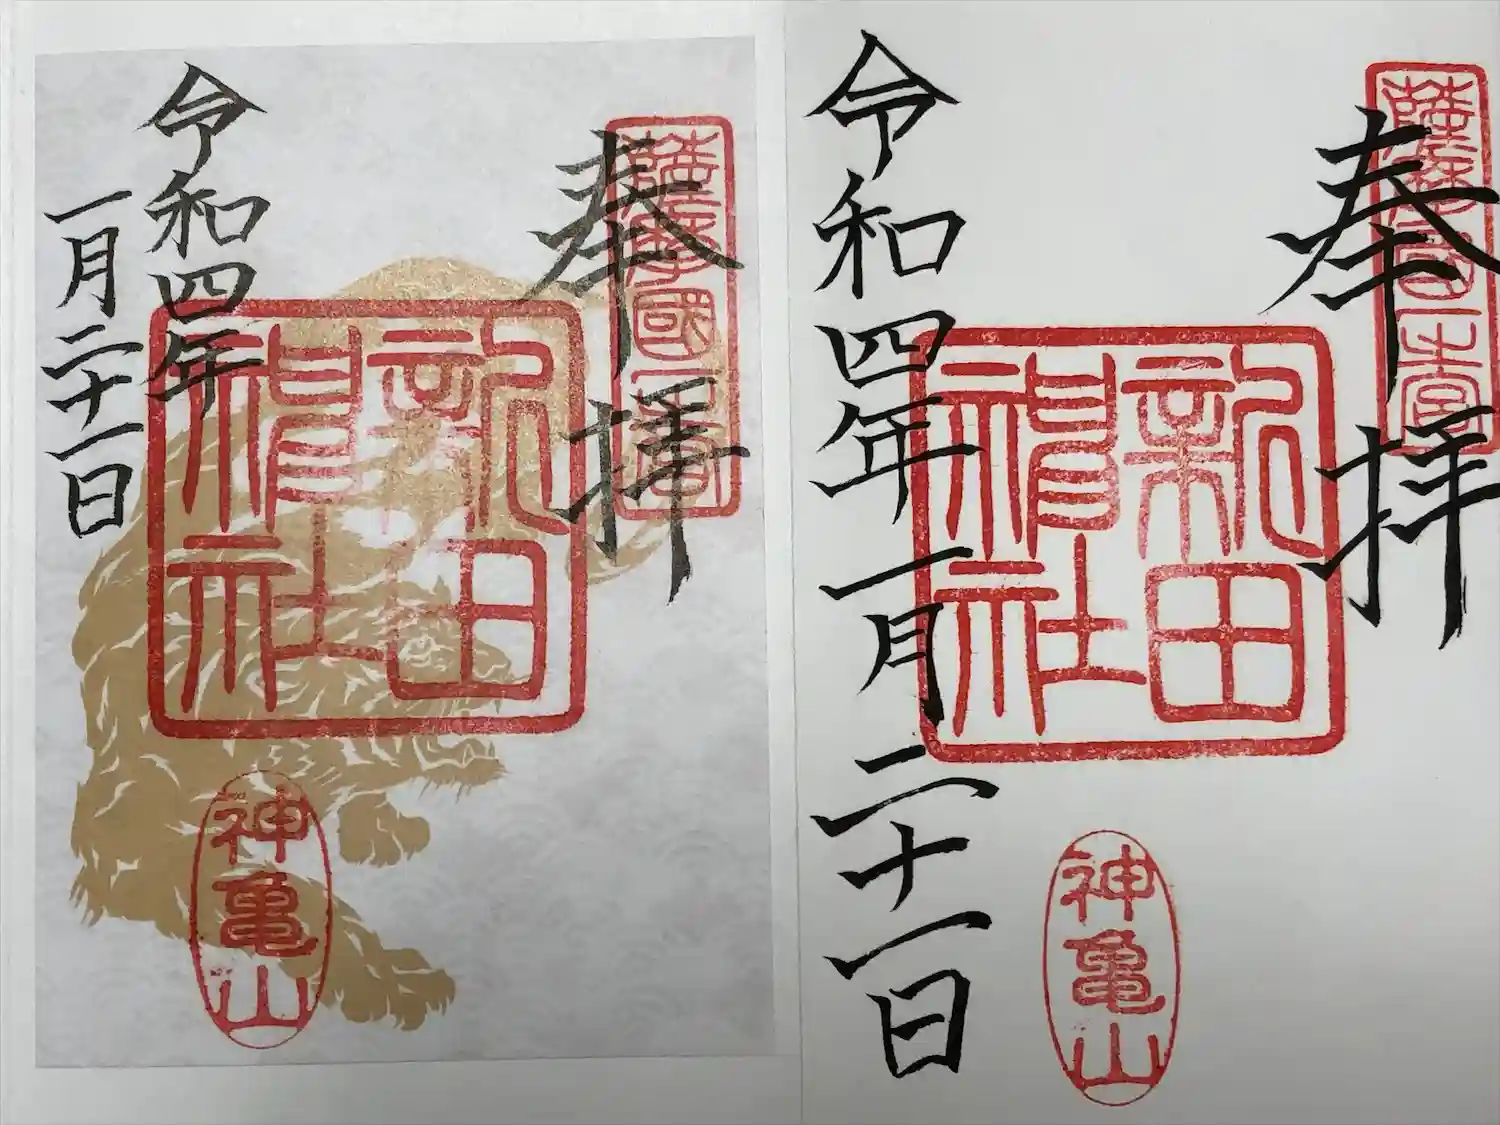 奉拝
薩摩國一之宮
新田
神社
令和四年
一月二十一日
神亀山
奉拝
薩摩國一之宮
新田
神社
令和四年一月二十一日
神亀山